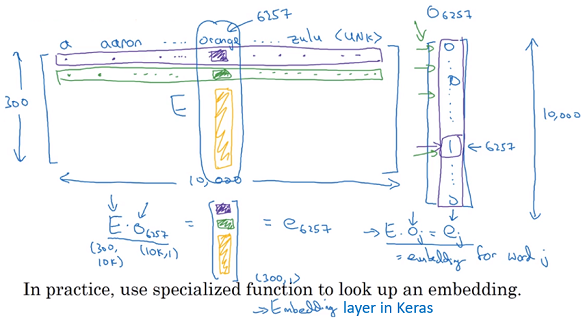 6257
O6257
a aaron ..... orange ..... zulu <UNK>
0
0
300
E
10,000
1
6257
10,000
0
E · O6257 = [ ] = e6257
(300, 10K) (10K,1)
(300,1)
→ E · Oj = ej
= embedding for word j
In practice, use specialized function to look up an embedding.
→ Embedding layer in Keras